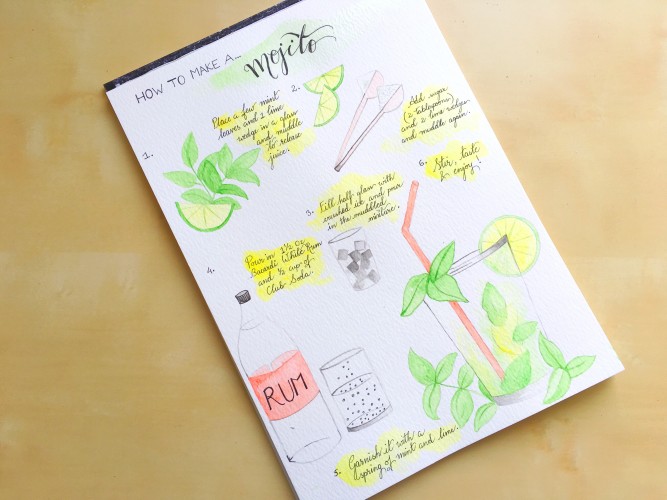 HOW TO MAKE A_
Mojito
1.
Place a few mint
leaves and 1 lime
wedge in a glass
and muddle
to release
juice.
2.
Add sugar
(2 tablespoons)
and 2 lime wedges
and muddle again.
3. Fill half glass with
crushed ice and pour
in the muddled
mixture.
4.
Pour in 1½ Oz.
Bacardi White Rum
and ½ cup of
Club Soda.
RUM
5. Garnish it with a
spring of mint and lime.
6. Stir, taste
& enjoy!